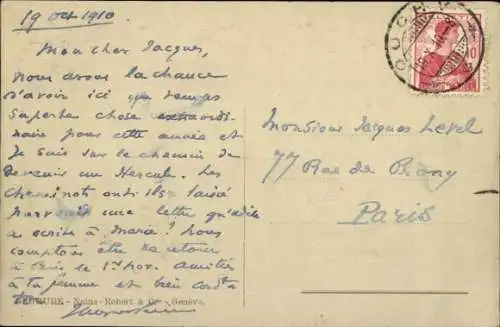 19 oct 1910
Mon cher Jacques,
nous avons la chance
d'avoir ici un temps
superbe chose extraordi-
naire pour cette année et
je suis sur le chemin de
devenir un Hercule. Les
cheminots ont ils laissé
parvenir une lettre qu'
a écrite à Marie? Nous
comptons être de retour
à Paris le 1er nov. amitiés
à ta femme et bien
OUCHY
10
Monsieur Jacques Level
77 Rue de Prony
Paris
GRAVURE - Naine-Robert & Cie - Genève.